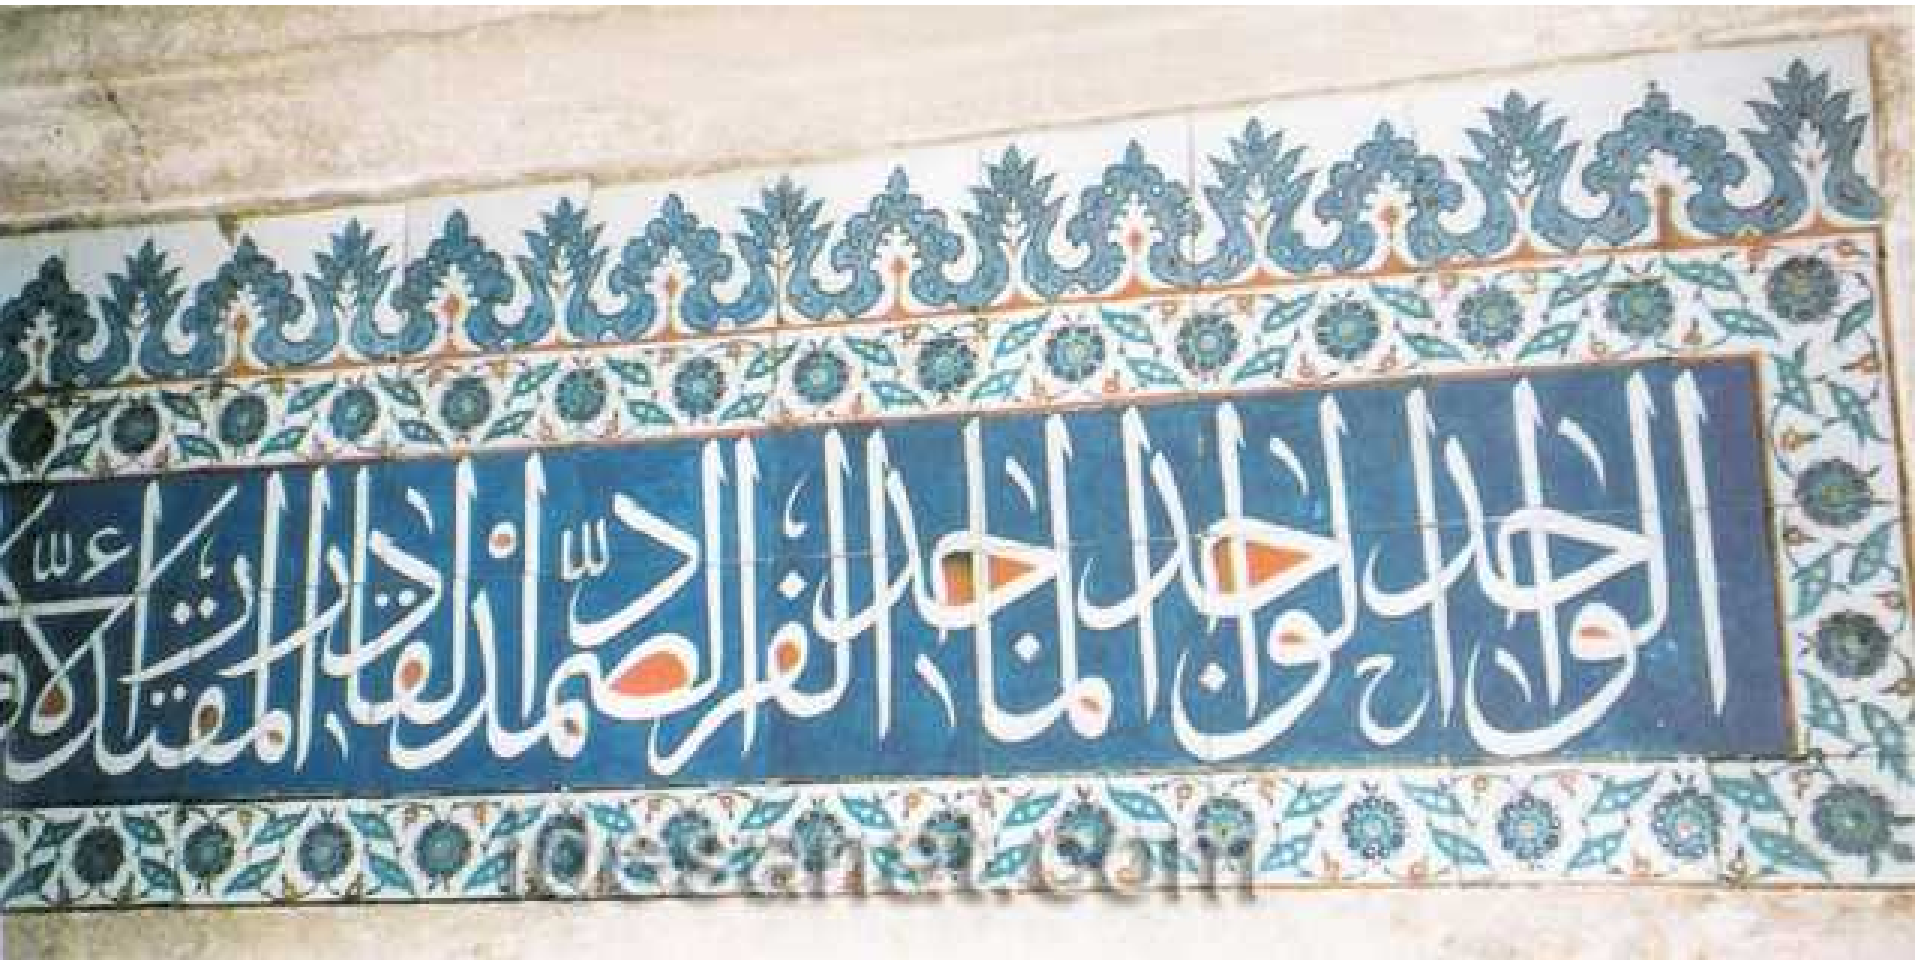 الواحد الواجد الماجد الفرد الصمد القادر المقتدر